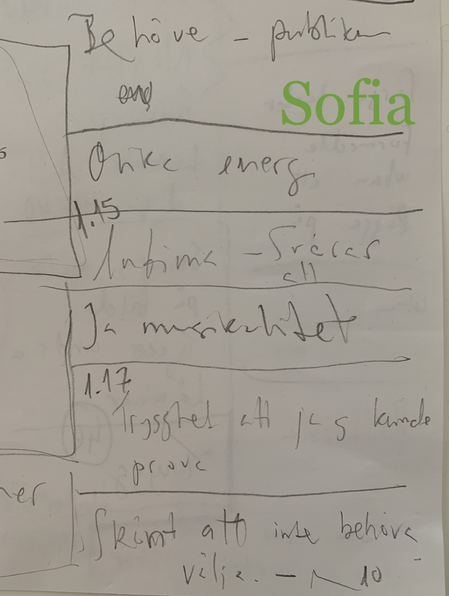 Behöve - publiken
end
Sofia
Onka energ
1.15
Intima - Svåras
att
Ja musikalitet
1.17
Trygghet att jag kunde
prova
ner
Skönt att inte behöva
välja. - 10